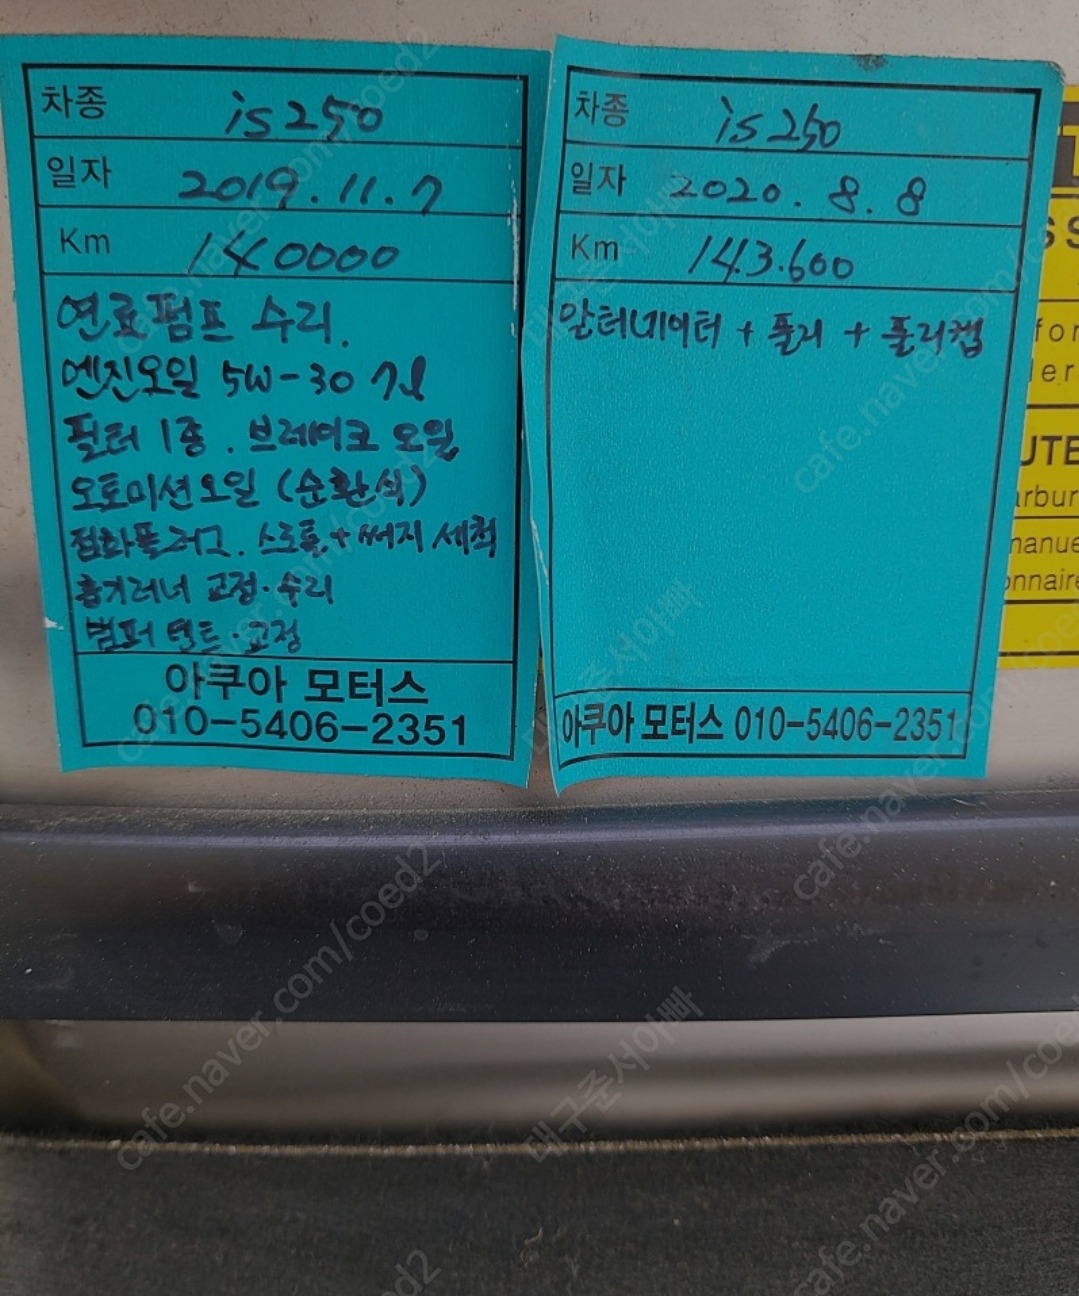 차종 is250
일자 2019.11.7
Km 140000
연료펌프 수리.
엔진오일 5W-30 7L
필터 1종. 브레이크 오일
오토미션오일 (순환식)
점화플러그. 스로틀+써지 세척
흡기러너 교정·수리
범퍼 덴트·교정
아쿠아 모터스
010-5406-2351
차종 is250
일자 2020.8.8
Km 143.600
알터네이터 + 풀리 + 풀리캡
아쿠아 모터스 010-5406-2351
S S
for
ler
UTE
arbur
manue
onnaire
cafe.naver.com/coed2
대구준서아빠